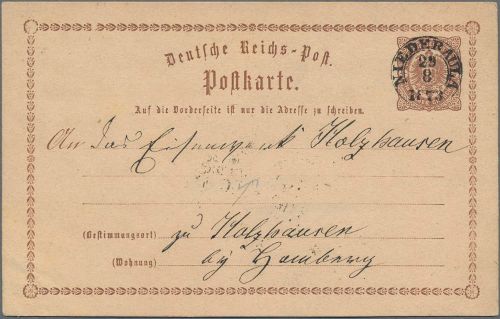 Deutsche Reichs-Post.
Postkarte.
NIEDERAULA
29
8
1873
Auf die Vorderseite ist nur die Adresse zu schreiben.
An das Eisenwerk Holzhausen
(Bestimmungsort) zu Holzhausen
(Wohnung) by Homberg